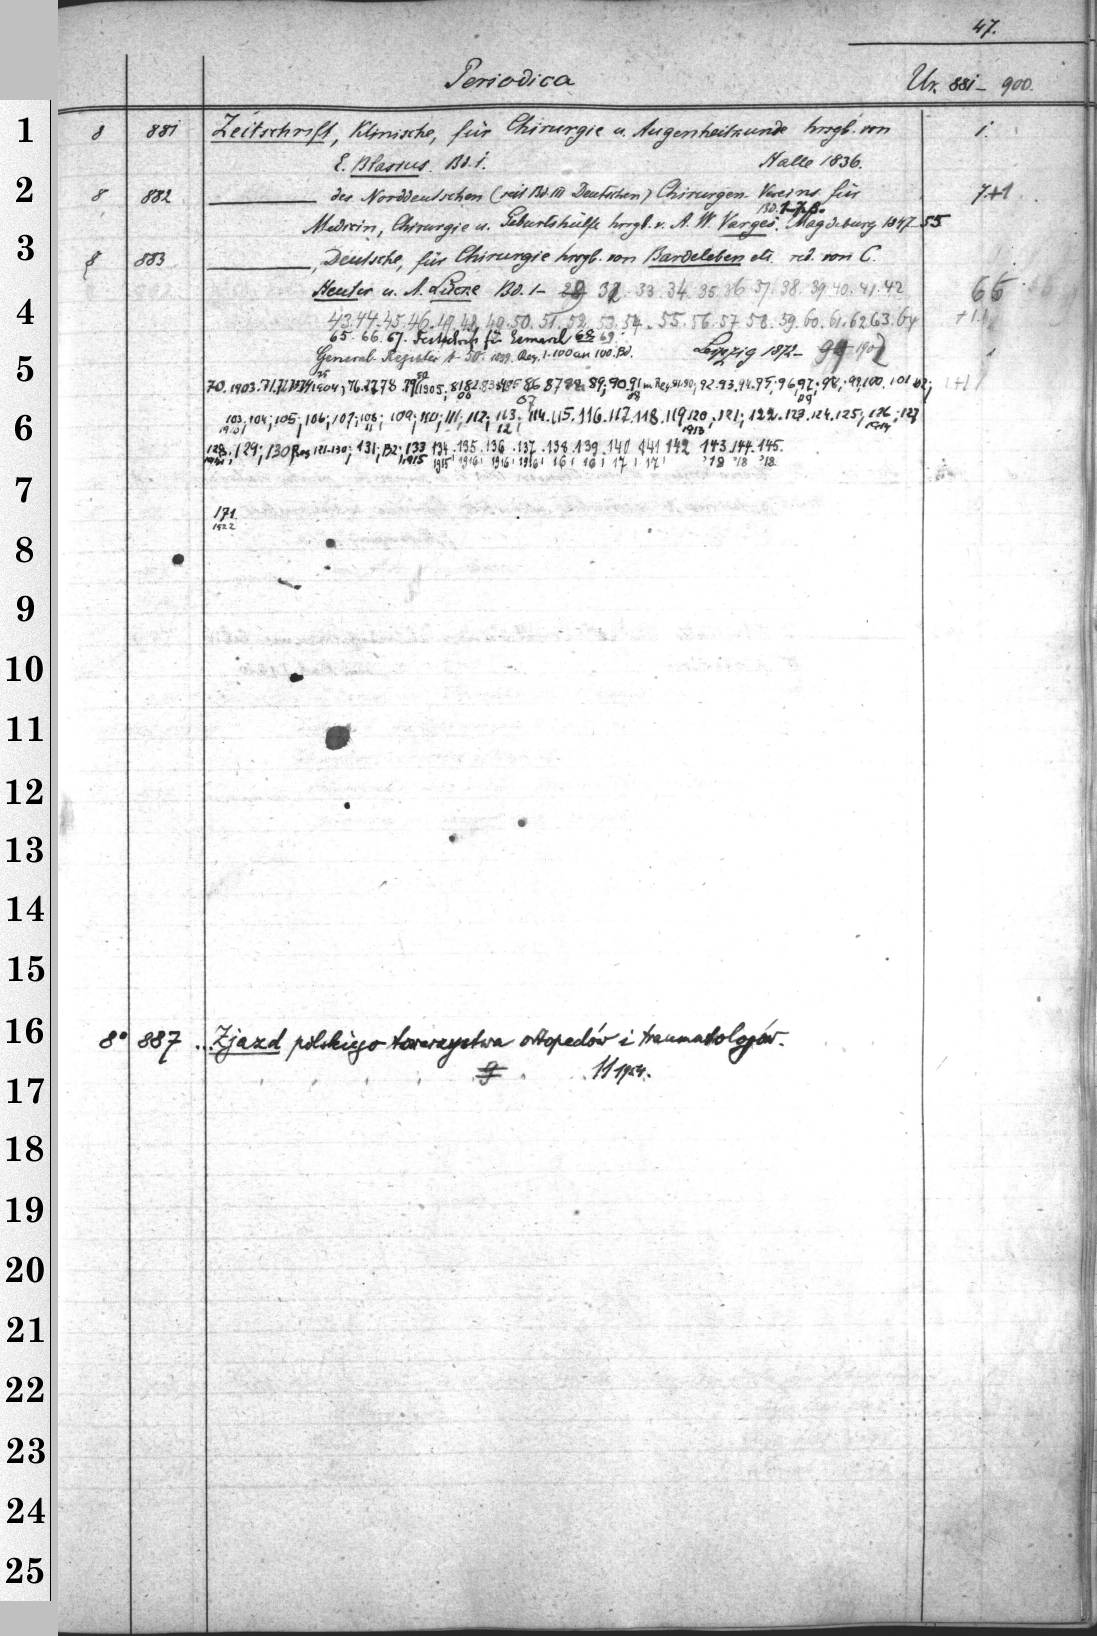 47.
Periodica Nr. 881 - 900.
1
8 881 Zeitschrift, Klinische, für Chirurgie u. Augenheilkunde hrsgb. von 1.
E. Blasius. Bd. 1. Halle 1836.
2
8 882 ——— des Norddeutschen (seit Bd. III Deutschen) Chirurgen-Vereins für 7+1
Bd. 1-7.8.
Medicin, Chirurgie u. Geburtshülfe hrsgb. v. A. W. Varges. Magdeburg 1847-55
3
8 883 ———, Deutsche, für Chirurgie hrsgb. von Bardeleben etc. red. von C.
Hueter u. A. Lücke Bd. 1- 32. 33. 34. 35. 36. 37. 38. 39. 40. 41. 42 66
4
43. 44. 45. 46. 47. 48. 49. 50. 51. 52. 53. 54. 55. 56. 57. 58. 59. 60. 61. 62. 63. 64 +1.1
65. 66. 67. Festschrift für Esmarch 68 69.
General-Register 1-50. 1899. Reg. 1-100 an 100. Bd. Leipzig 1872- 1902
5
70. 1903. 71. 1904; 76. 77. 78. 79. 1905; 81 82. 83 86 87 88. 89; 90. 91 m Reg. 81-90; 92. 93. 94. 95; 96 97; 98; 99. 100. 101 102; 1+1
6
103; 104; 105; 106; 107; 108; 109; 110; 111; 112; 113; 114. 115. 116. 117. 118. 119 120; 121; 122. 123. 124. 125; 126; 127
128; 129; 130 Reg 121-130; 131; 132; 133 134. 135. 136. 137. 138. 139. 140 141 142 143. 144. 145.
1915 1915 1916 1916 1916 16 16 17 17 '18 '18 '18
7
171.
1922
8
9
10
11
12
13
14
15
16
8° 887 Zjazd polskiego towarzystwa ortopedów i traumatologów.
11 1954.
17
18
19
20
21
22
23
24
25